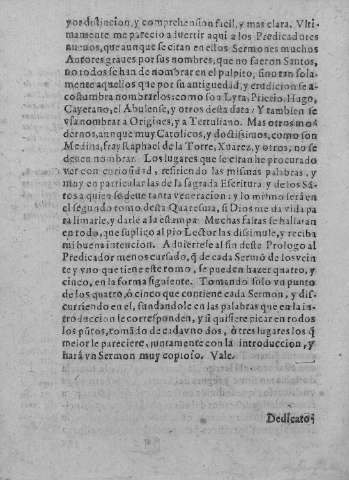 yor distincion, y comprehension facil, y mas clara. Vlti-
mamente me parecio aduertir aqui a los Predicadores
nueuos, que aunque se citan en estos Sermones muchos
Autores graues por sus nombres, que no fueron Santos,
no todos se han de nombrar en el pulpito, sino tan sola-
mente aquellos que por su antiguedad, y erudicion se a-
costumbra nombrarlos: como son Lyra, Hugo,
Cayetano, el Abulense, y otros desta data. Y tambien se
vsa nombrar a Origines, y a Tertuliano. Mas otros mo-
dernos, aunque muy Catolicos, y doctissimos, como son
Medina, fray Raphael de la Torre, Xuarez, y otros, no se
deuen nombrar. Los lugares que se citan he procurado
ver con curiosidad, refiriendo las mismas palabras, y
muy en particular las de la sagrada Escritura y de los Sā-
tos a quien se deue tanta veneracion: y lo mismo serà en
el segundo tomo desta Quaresma, si Dios me da vida pa
ra limarle, y darle a la estampa. Muchas faltas se hallaran
en todo, que suplico al pio Lector las dissimule, y reciba
mi buena intencion. Aduiertese al fin deste Prologo al
Predicador menos cursado, q̃ de cada Sermō de los vein
te y vno que tiene este tomo, se pueden hazer quatro, y
cinco, en la forma siguiente. Tomando solo vn punto
de los quatro, ò cinco que contiene cada Sermon, y dis-
curriendo en el, fundandole en las palabras que en la in-
troduccion le corresponden, y si quisiere picar en todos
los pūtos, tomādo de cada vno dos, ò tres lugares los q̃
mejor le pareciere, juntamente con la introduccion, y
harà vn Sermon muy copioso. Vale.
Dedicato-